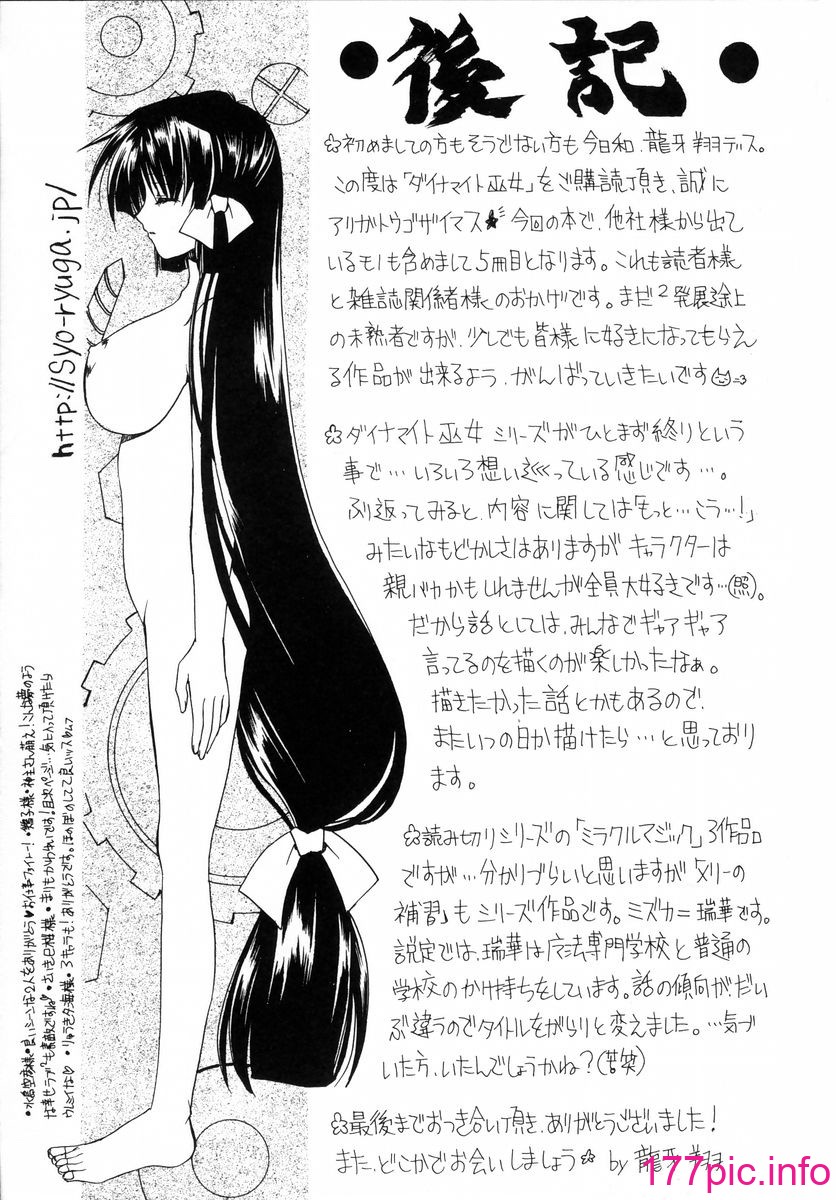 ・後記・
☆初めましての方もそうでない方も今日和、龍牙翔ヲデス。
この度は「ダイナマイト巫女」をご購読頂き、誠に
アリガトウゴザイマス★ 今回の本で、他社様から出て
いるモノも含めまして5冊目となります。これも読者様
と雑誌関係者様のおかげです。まだ2発展途上
の未熟者ですが、少しでも皆様に好きになってもらえ
る作品が出来るよう、がんばっていきたいです
☆ダイナマイト巫女シリーズがひとまず終りという
事で…いろいろ想い巡っている感じです…。
ふり返ってみると、内容に関しては「もっと…こう…!」
みたいなもどかしさはありますがキャラクターは
親バカかもしれませんが全員大好きです…(照)。
だから話としては、みんなでギャアギャア
言ってるのを描くのが楽しかったなぁ。
描きたかった話とかもあるので、
またいつの日か描けたら…と思っており
ます。
☆読み切りシリーズの「ミラクルマジック」3作品
ですが…分かりづらいと思いますが「メリーの
補習」もシリーズ作品です。ミズカ=瑞華です。
設定では、瑞華は魔法専門学校と普通の
学校のかけ持ちをしています。話の傾向がだい
ぶ違うのでタイトルをがらりと変えました。…気づ
いた方、いたんでしょうかね?(苦笑)
☆最後までおつき合い頂き、ありがとうございました!
また、どこかでお会いしましょう☆ by 龍牙翔
http://Syo-ryuga.jp/
良いシーンな2人をありがとう♥お仕事ファイトー!
な幸せラブ2も素敵ですね♡
ほのぼのしてて良いッスねェ
177pic.info